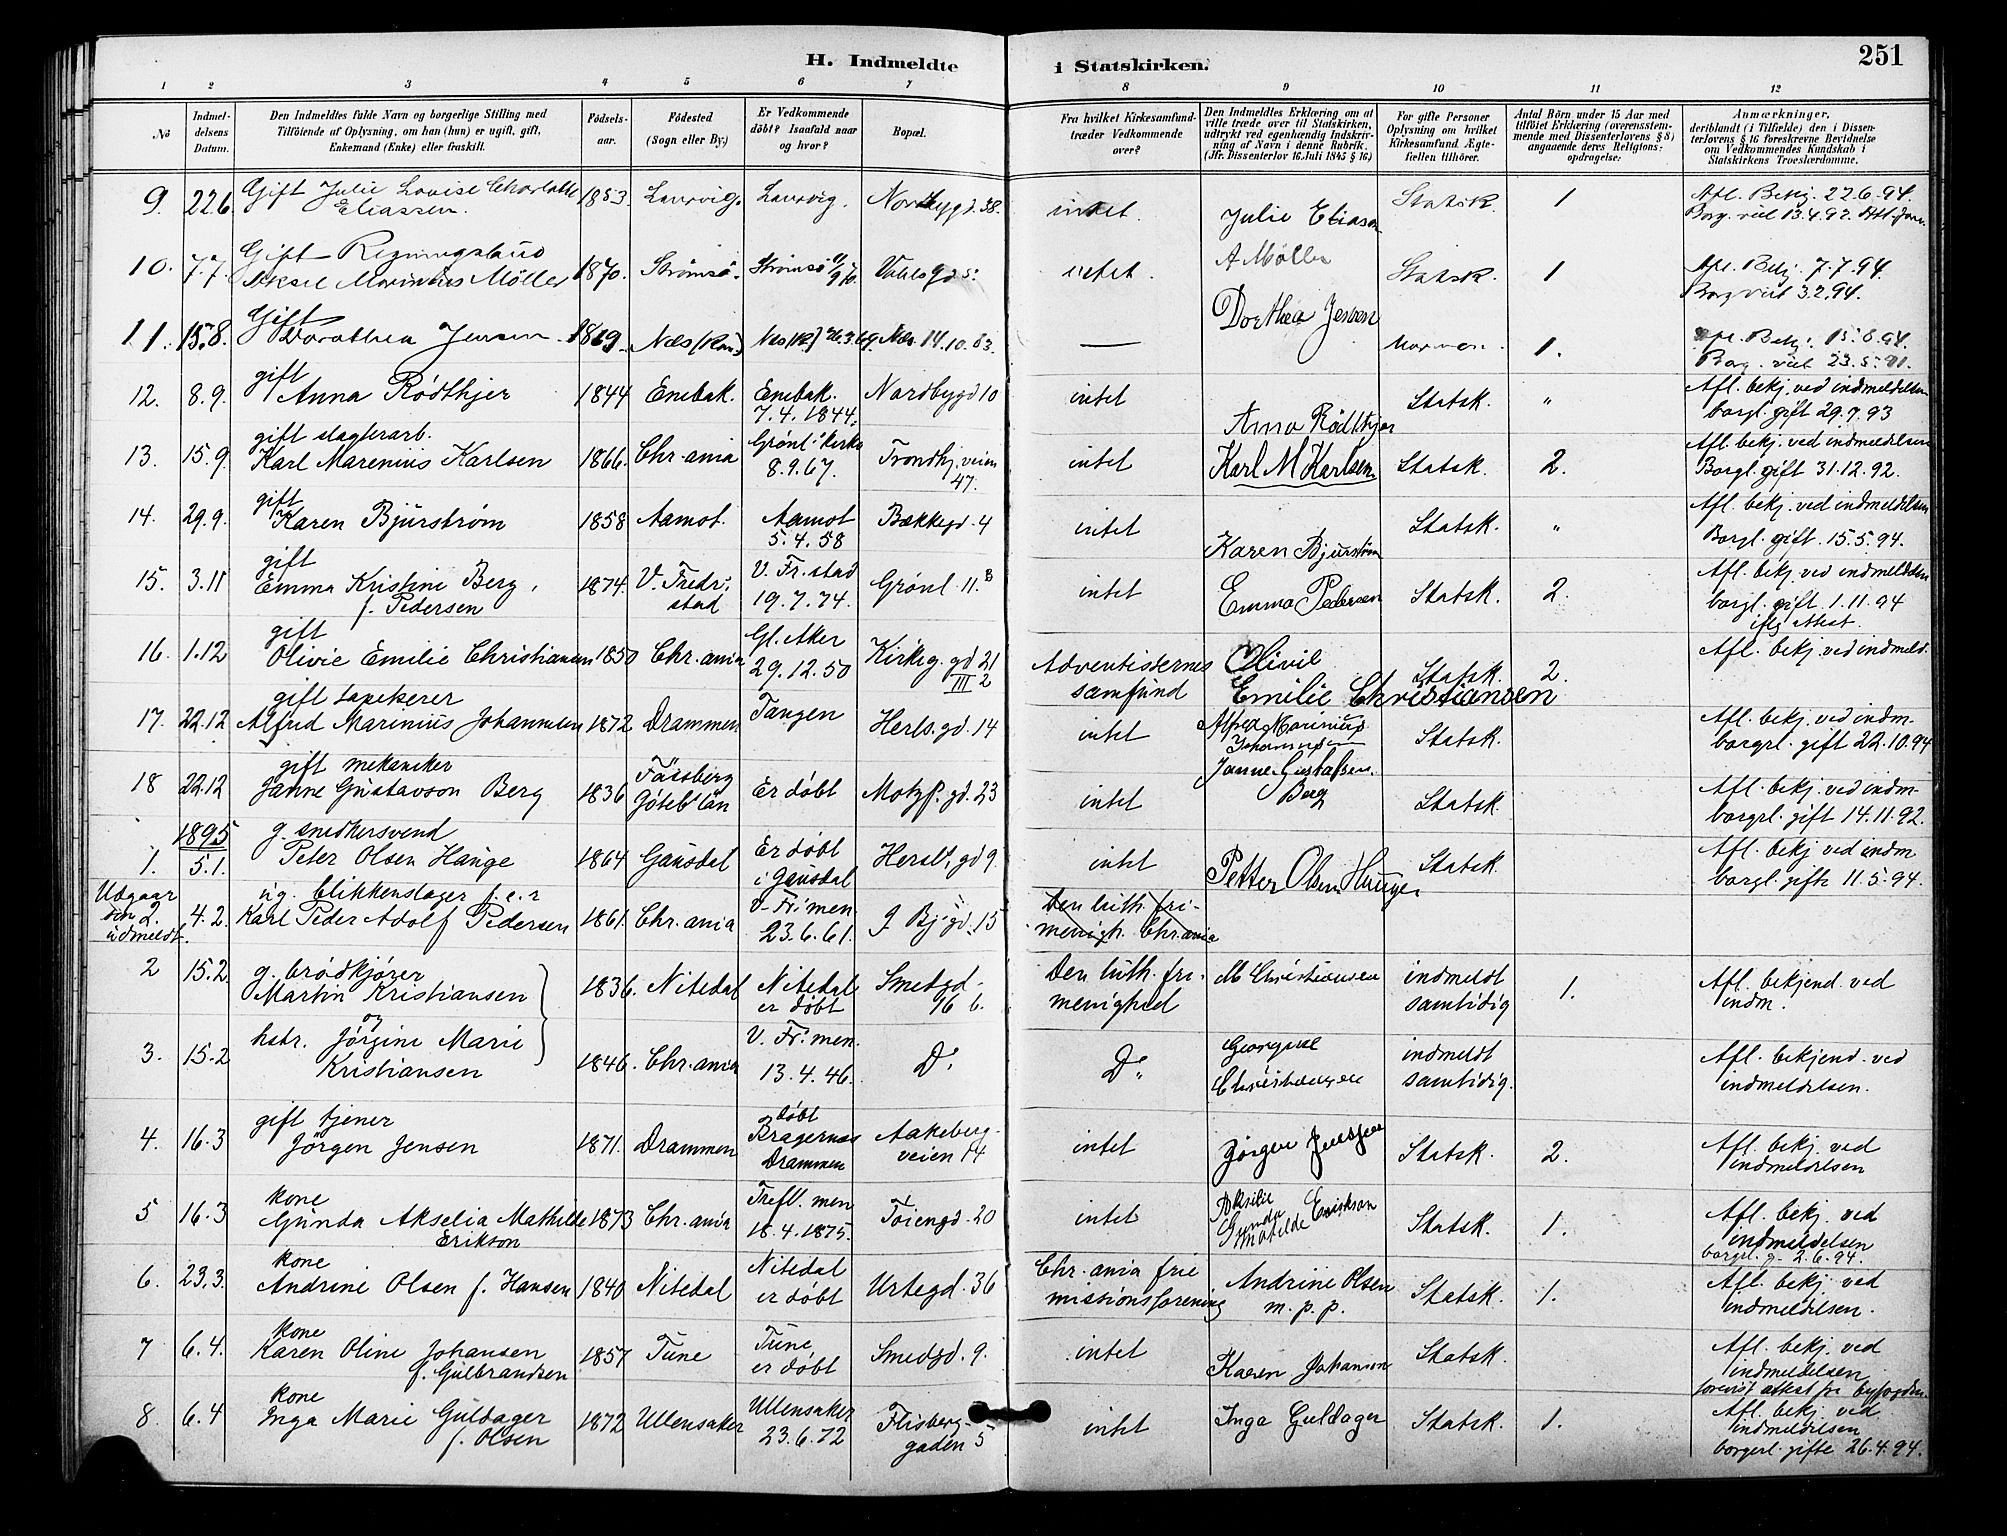 251
H. Indmeldte i Statskirken.
1 2 3 4 5 6 7 8 9 10 11 12
No
Indmeldelsens Datum.
Den Indmeldtes fulde Navn og borgerlige Stilling med Tilföiende af Oplysning, om han (hun) er ugift, gift, Enkemand (Enke) eller fraskilt.
Födselsaar.
Födested (Sogn eller By.)
Er Vedkommende döbt? Isaafald naar og hvor?
Bopæl.
Fra hvilket Kirkesamfund træder Vedkommende over?
Den Indmeldtes Erklæring om at ville træde over til Statskirken, udtrykt ved egenhændig Indskrivning af Navn i denne Rubrik. (Jfr. Dissenterlov 16. Juli 1845 § 16)
For gifte Personer Oplysning om hvilket Kirkesamfund Ægtefællen tilhörer.
Antal Börn under 15 Aar med tilföiet Erklæring (overensstemmende med Dissenterlovens § 8) angaaende deres Religionsopdragelse:
Anmærkninger, deriblandt (i Tilfælde) den i Dissenterlovens § 16 foreskrevne Bevidnelse om Vedkommendes Kundskab i Statskirkens Troeslærdomme.
9. 22.6 Gift Julie Lovise Charlotte Eliassen. 1853 Laurvig. Laurvig. Nordbygd. 38. intet. Julie Eliason Statsk. 1 Afl. Bekj. 22.6.94. Borg. viet 13.4.92.
10. 7.7. Gift Regningsbud Aksel Marinius Möller 1870. Strömsö. Strömsö Vahls gd 5. intet. A Möller Statsk. 1 Afl. Bekj. 7.7.94. Borg viet 3.2.94.
11. 15.8. Gift Dorothea Jensen 1869. Næs (Rom.) Næs 14.10.83. — Dorthea Jensen Mormon. 1. Afl. Bekj. 15.8.94. Borg. viet 23.5.91.
12. 8.9. gift Anna Rödthjer 1844 Enebak. Enebak. 7.4.1844. Nordbygd 10 intet Anna Rödthjer Statsk. " Afl. bekj. ved indmeldelsen borgl. gift 29.9.93
13. 15.9. gift slagterarb. Karl Marenius Karlsen 1866. Chr.ania Grönl. kirke 8.9.67. Trondhj.veien 47. intet Karl M Karlsen Statsk. 2. Afl. bekj. ved indmeldelsen Borgl. gift 31.12.92.
14. 29.9. gift Karen Bjurström 1858 Aamot. Aamot 5.4.58 Bækkegd. 4 intet Karen Bjurström Statsk. " Afl. bekj. ved indmeldelsen Borgl. gift. 15.5.94.
15. 3.11 gift Emma Kristine Berg, f. Pedersen 1874. V. Fredr.stad V. Fr.stad 19.7.74. Grönl. 11.B intet Emma Pedersen Statsk. 2. Afl. bekj. ved indmeldelsen borgl. gift. 1.11.94 iflg attest.
16. 1.12 gift Olivie Emilie Christiansen 1850 Chr.ania Gl. Aker 29.12.50 Kirkeg. gd 21 III 2 Adventisternes samfund Olivie Emilie Christiansen Statsk. 2. Afl. bekj. ved indmeld.
17. 22.12 gift tapetserer Alfred Marinius Johannesen 1872 Drammen Tangen Herls. gd. 14 intet Alfred Marinius Johannesen Statsk. Afl. bekj. ved indm. borgrl. gift 22.10.94
18 22.12 gift mekaniker Janne Gustavson Berg 1836 Fässberg Göteb. län Er döbt Motzf. gd. 23 intet Janne Gustafsen Berg Statsk. Afl. bekj. ved indm. borgrl. gift 14.11.92.
1895
1. 5.1. g. snedkersvend Peter Olsen Hauge 1864 Gausdal Er döbt i Gausdal Hersl. gd 9. intet Petter Olsen Hauger Statsk. Afl. bekj ved indm borgl. gift 11.5.94.
Udgaar den 2. udmeldt. 4.2. ug. blikkenslager f.e.r Karl Peder Adolf Pedersen 1861. Chr.ania V. Fr.men. 23.6.61. g Bj.gd. 15 Den luth. frimenigh. Chr.ania
2 15.2. g. brödkjörer Martin Kristiansen 1836. Nitedal Nitedal er döbt Smedgd. 16 b. Den luth. frimenighed M Christiansen indmeldt samtidig 1. Afl. bekjend. ved indm.
3. 15.2 og hstr. Jörgine Marie Kristiansen 1846. Chr.ania V. Fr.men. 13.4.46. D. D. Georgine Christiansen indmeldt samtidig. Afl. bekjend. ved indmeldelsen.
4. 16.3 gift tjener Jörgen Jensen 1871. Drammen döbt Bragernæs Drammen Aakebergveien 14 intet Jörgen Jensen Statsk. 2. Afl. bekj. ved indmeldelsen
5 16.3 kone Gunda Akselia Mathilde Erikson 1873 Chr.ania Trefl. men 18.4.1875. Töiengd. 20 intet Akselie Gunda Matilde Erikson Statsk. 1. Afl. bekj. ved indmeldelsen borgrl. g. 2.6.94.
6. 23.3. kone Andrine Olsen f. Hansen 1840 Nitedal Nitedal er döbt Urtegd. 36 Chr.ania frie missionsforening Andrine Olsen m.p.p. Statsk. 1. Afl. bekj. ved indmeldelsen.
7 6.4. kone Karen Oline Johansen f. Gulbrandsen 1857 Tune Tune, er döbt Smedgd. 9. intet Karen Johansen Statsk. Afl. bekj. ved indmeldelsen forevist attest fra byfogden
8. 6.4 kone Inga Marie Guldager f. Olsen 1872 Ullensaker Ullensaker 23.6.72 Flisberggaden 5 intet Inga Guldager Statsk. 1. Afl. bekj. ved indmeldelsen borgerl. gifte 26.4.94.